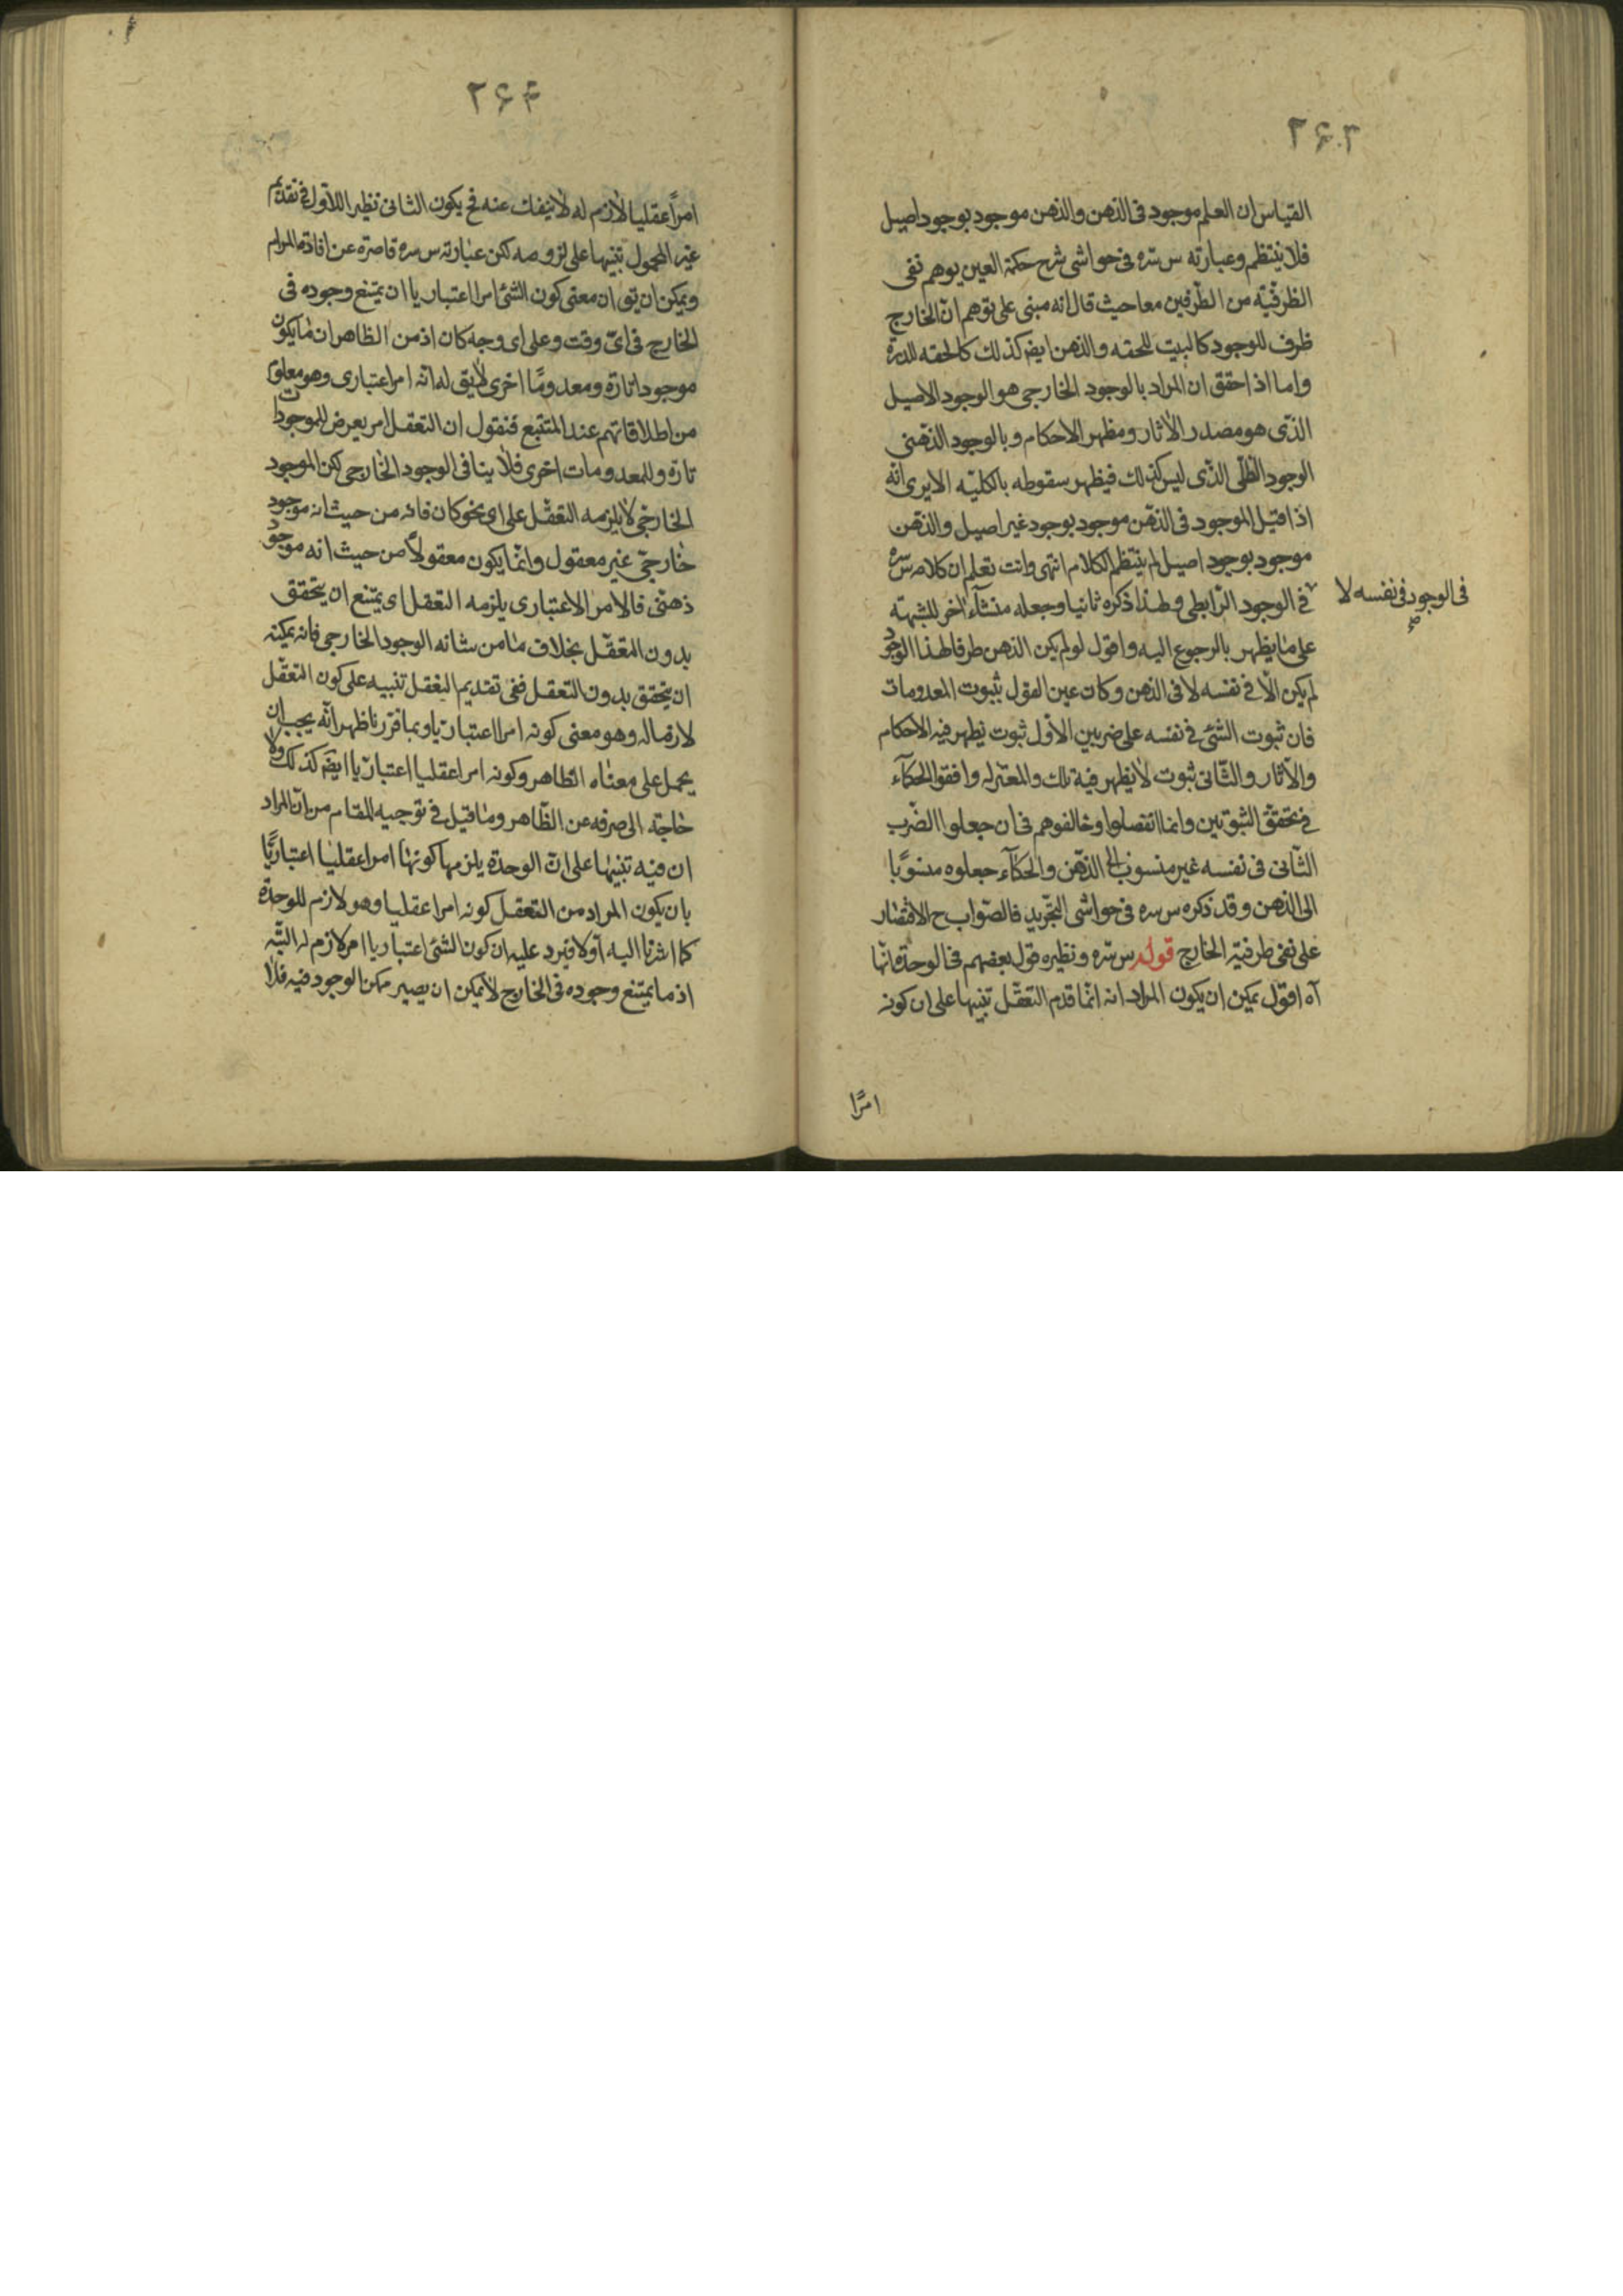 ٢۶٣
القياس ان العلم موجود فى الذهن والذهن موجود بوجود اصيل
فلا ينتظم وعبارته س سره فى حواشى شرح حكمة العين يوهم نفى
الظرفيّة من الطّرفين معا حيث قال انه مبنى على توهم انّ الخارج
ظرف للوجود كالبيت للحقه والذهن ايضا كذلك كالحقه للدرة
واما اذا حقق ان المراد بالوجود الخارجى هو الوجود الاصيل
الذّى هو مصدر الاثار ومظهر الاحكام وبالوجود الذهنى
الوجود الظّلى الذّى ليس كذلك فيظهر سقوطه بالكليّه الا يرى انّه
اذا قيل الموجود فى الذهن موجود بوجود غير اصيل والذهن
موجود بوجود اصيل لم ينتظم الكلام انتهى وانت تعلم ان كلامه س سره
فى الوجود فى نفسه لا
فى الوجود الرّابطى ولهذا ذكره ثانيا وجعله منشأ اخر للشبهة
على ما يظهر بالرجوع اليه واقول لو لم يكن الذهن ظرفا لهذا الوجود
لم يكن الّا فى نفسه لا فى الذهن وكان عين القول بثبوت المعدومات
فان ثبوت الشئ فى نفسه على ضربين الاوّل ثبوت يظهر فيه الاحكام
والآثار والثّانى ثبوت لا يظهر فيه تلك والمعتزله وافقوا الحكمآء
فى تحقّق الثبوتين وانما انفصلوا وخالفوهم فى ان جعلوا الضّرب
الثّانى فى نفسه غير منسوب الى الذهن والحكمآء جعلوه منسوبًا
الى الذهن وقد ذكره س سره فى حواشى التجريد فالصّواب ح الاقتصار
على نفى ظرفيّة الخارج قوله س سّره ونظيره قول بعضهم فى الوحدة انّها
آه اقول يمكن ان يكون المراد انه انّما قدم التعقّل تنبيها على ان كونه
امرًا
٢۶۴
امرًا عقليا لازم له لا ينفك عنه فح يكون الثانى نظيرا للاوّل فى تقديم
غير المحمول تنبيها على لزومه لكن عبارته س سره قاصرة عن افادة المرام
ويمكن ان يق ان معنى كون الشئ امرا اعتباريا ان يمتنع وجوده فى
الخارج فى اىّ وقت وعلى اى وجه كان اذ من الظاهر ان ما يكون
موجودا تارة ومعدومًا اخرى لا يق له انّه امر اعتبارى وهو معلوم
من اطلاقاتهم عند المتتبع فنقول ان التعقل امر يعرض للموجودات
تارة وللمعدومات اخرى فلا ينافى الوجود الخارجى لكن الموجود
الخارجى لا يلزمه التعقّل على اى نحو كان فانه من حيث انه موجود
خارجىّ غير معقول وانّما يكون معقولاً من حيث انه موجود
ذهنّى فالامر الاعتبارى يلزمه التعقل اى يمتنع ان يتحقق
بدون التعقّل بخلاف ما من شانه الوجود الخارجى فانه يمكنه
ان يتحقق بدون التعقل ففى تقديم التعقل تنبيه على كون التعقّل
لازما له وهو معنى كونه امرا اعتباريّا وبما قررنا ظهر انّه يجب ان
يحمل على معناه الظاهر وكونه امرا عقليا اعتباريّا ايضا كذلك ولا
حاجة الى صرفه عن الظّاهر وما قيل فى توجيه المقام من انّ المراد
ان فيه تنبيها على انّ الوحدة يلزمها كونها امرا عقليا اعتباريًّا
بان يكون المراد من التعقل كونه امرا عقليا وهو لازم للوحدة
كما اشرنا اليه اوّلا فيرد عليه ان كون الشئ اعتباريا امر لازم له البتّه
اذ ما يمتنع وجوده فى الخارج لا يمكن ان يصير ممكن الوجود فيه فلا